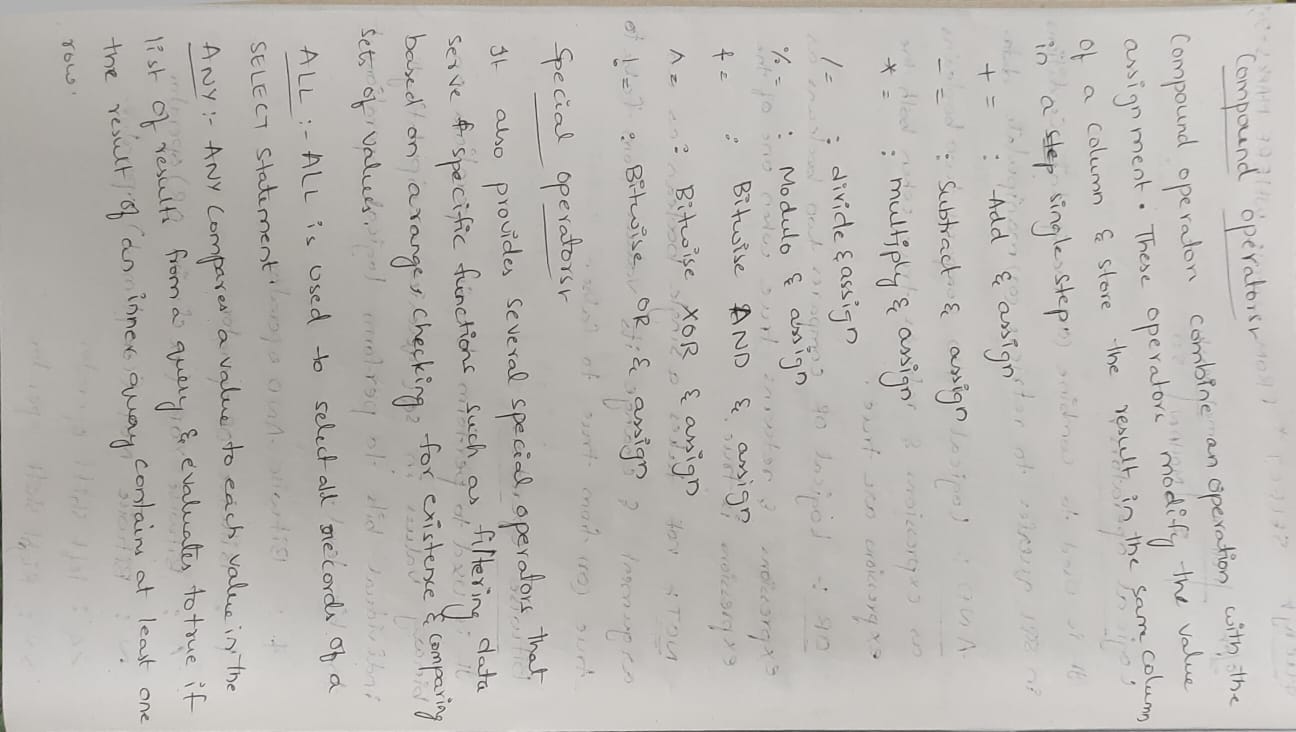 Compound operators:-
Compound operators combine an operation with the
assignment. These operators modify the value
of a column & store the result in the same column
in a single step.
+= : Add & assign
-= : Subtract & assign
*= : multiply & assign
/= : divide & assign
%= : Modulo & assign
&= : Bitwise AND & assign
^= : Bitwise XOR & assign
!= : Bitwise OR & assign
Special operators:-
It also provides several special operators that
serve specific functions such as filtering data
based on a range, checking for existence & comparing
sets of values.
ALL :- ALL is used to select all records of a
SELECT Statement.
ANY :- ANY compares a value to each value in the
list of results from a query & evaluates to true if
the result of an inner query contains at least one
row.